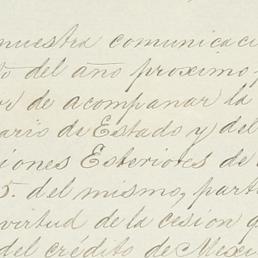 nuestra comunicaci
o del año proximo p
or de acompanar la
ario de Estado y del
iones Esteriores de
5. del mismo, parti
virtud de la cesion q
del crédito de Méxi